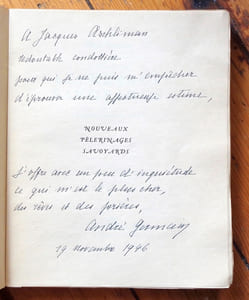 A Jacques
redoutable condottiere
pour qui je ne puis m'empêcher
d'éprouver une affectueuse estime,
NOUVEAUX
PÈLERINAGES
SAVOYARDS
J'offre avec un peu d'inquiétude
ce qui m'est le plus cher,
du rêve et des prières,
André Germain
19 novembre 1946